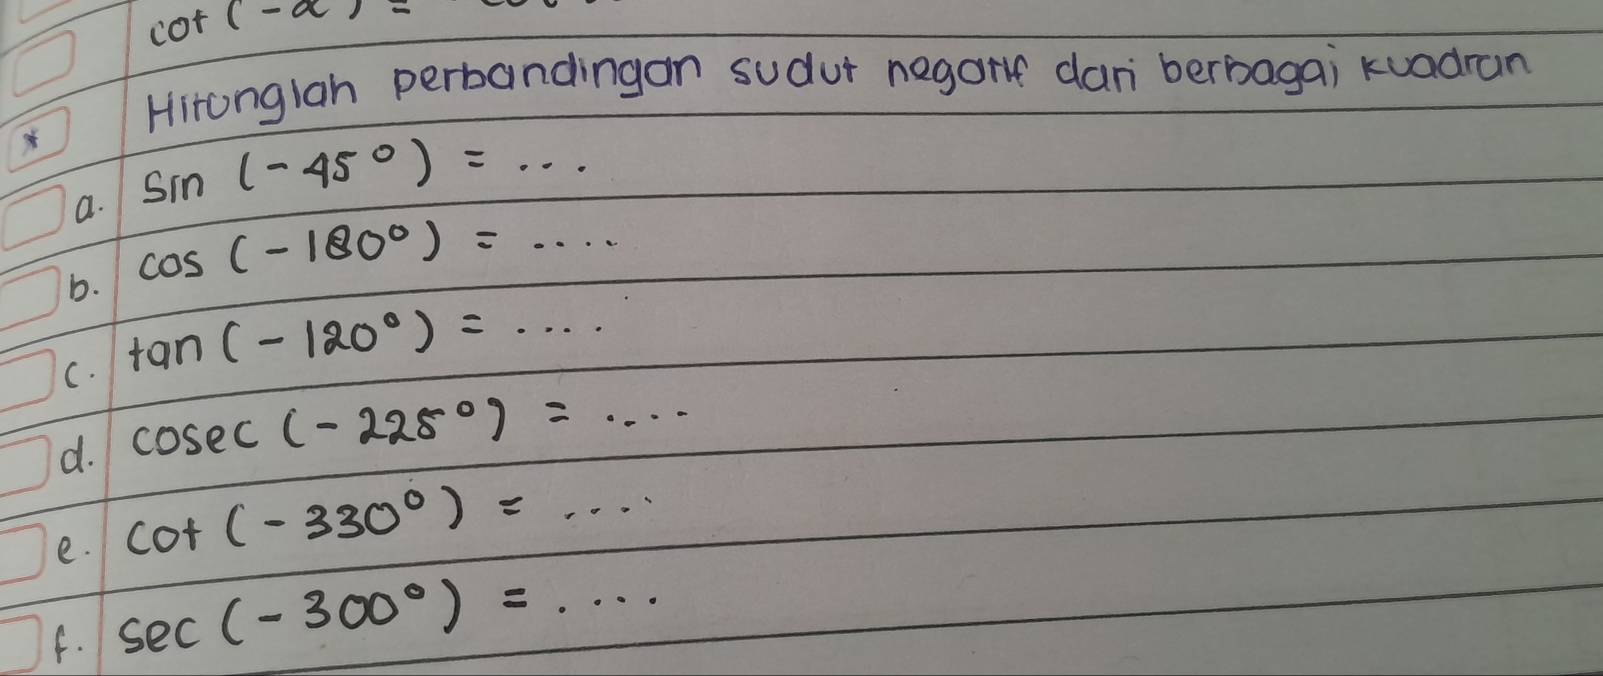 cot (-α) =
Hitunglah perbandingan sudut negatif dari berbagai kuadran
a. sin (-45°) = ...
b. cos (-180°) = ....
c. tan (-120°) = ....
d. cosec (-225°) = ....
e. cot (-330°) = ....
f. sec (-300°) = ....